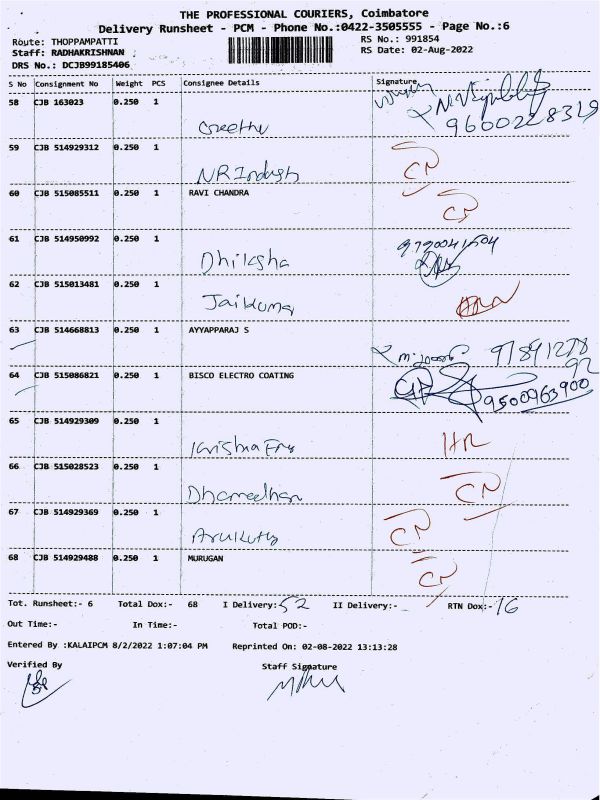 THE PROFESSIONAL COURIERS, Coimbatore
Delivery Runsheet - PCM - Phone No.:0422-3505555 - Page No.:6
Route: THOPPAMPATTI RS No.: 991854
Staff: RADHAKRISHNAN RS Date: 02-Aug-2022
DRS No.: DCJB99185406
S No Consignment No Weight PCS Consignee Details Signature
58 CJB 163023 0.250 1
Geethu 9600228329
59 CJB 514929312 0.250 1
NR Industs CN
60 CJB 515085511 0.250 1 RAVI CHANDRA
CN
61 CJB 514950992 0.250 1 9790041504
Dhiksha
62 CJB 515013481 0.250 1
Jaikumar
63 CJB 514668813 0.250 1 AYYAPPARAJ S
97841278
92
64 CJB 515086821 0.250 1 BISCO ELECTRO COATING
9500963900
65 CJB 514929309 0.250 1
Krishna Eng HR
66 CJB 515028523 0.250 1
CN
67 CJB 514929369 0.250 1
CN
68 CJB 514929488 0.250 1 MURUGAN
CN
Tot. Runsheet:- 6 Total Dox:- 68 I Delivery:- 52 II Delivery:- RTN Dox:- 16
Out Time:- In Time:- Total POD:-
Entered By :KALAIPCM 8/2/2022 1:07:04 PM Reprinted On: 02-08-2022 13:13:28
Verified By Staff Signature